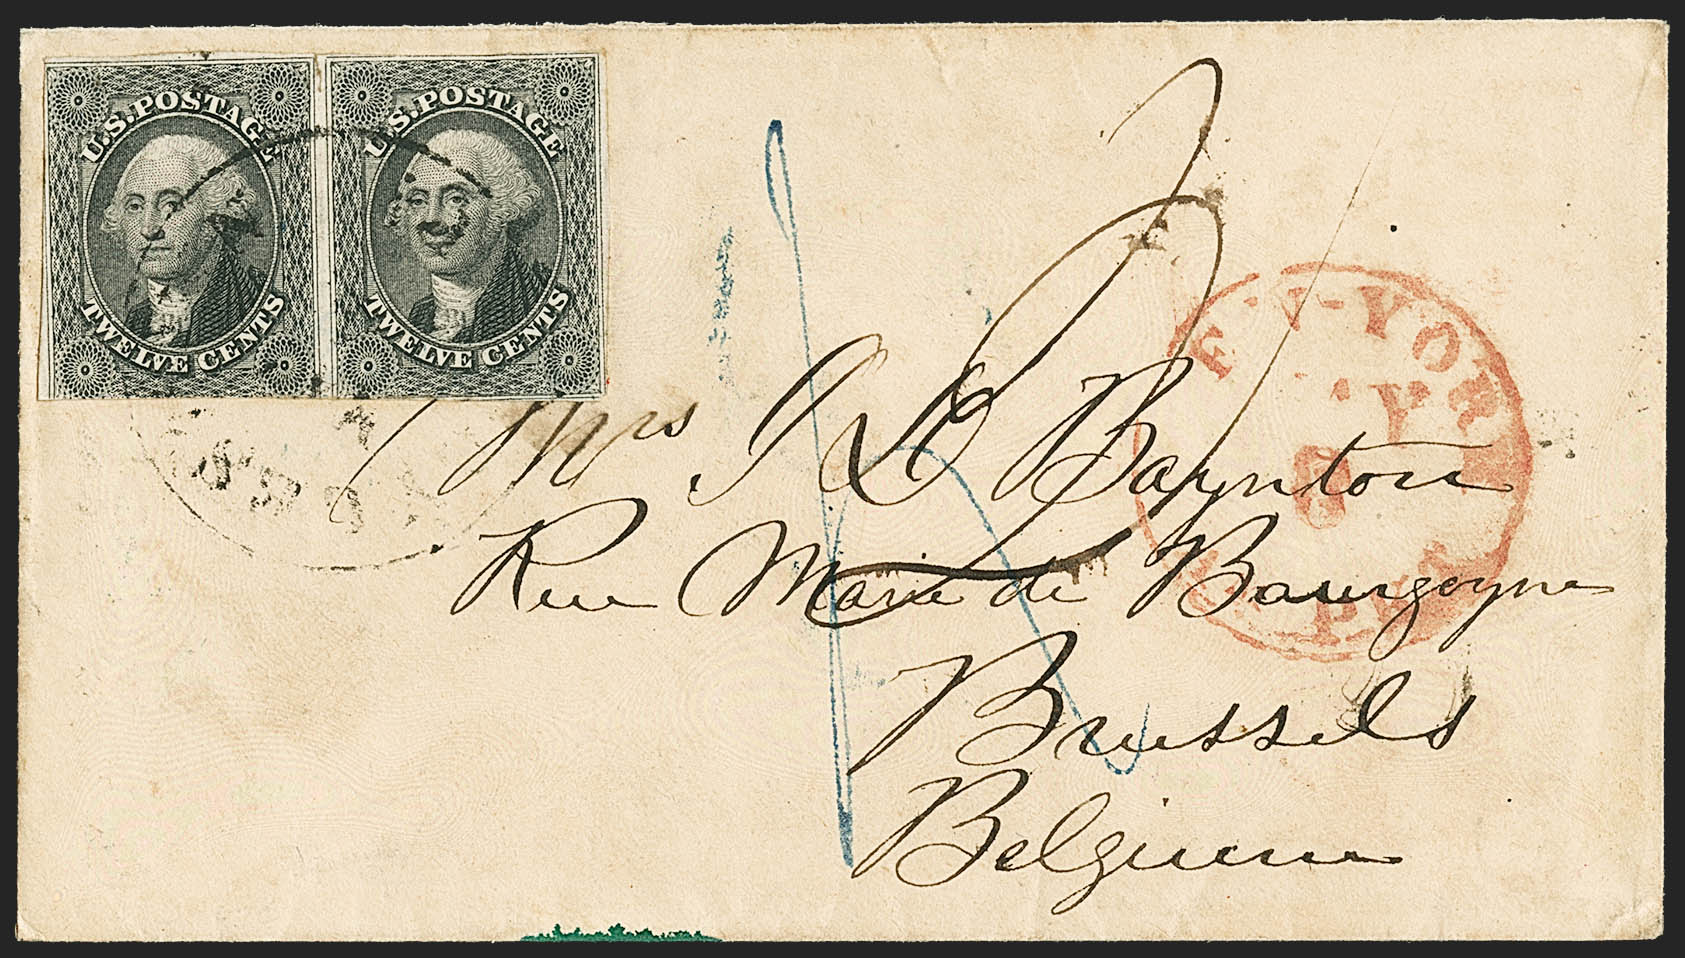 U.S. POSTAGE
TWELVE CENTS
U.S. POSTAGE
TWELVE CENTS
Mrs. G D Boynton
Rue Marie de Bourgogne
Brussels
Belgium
NEW-YORK
MAY
8